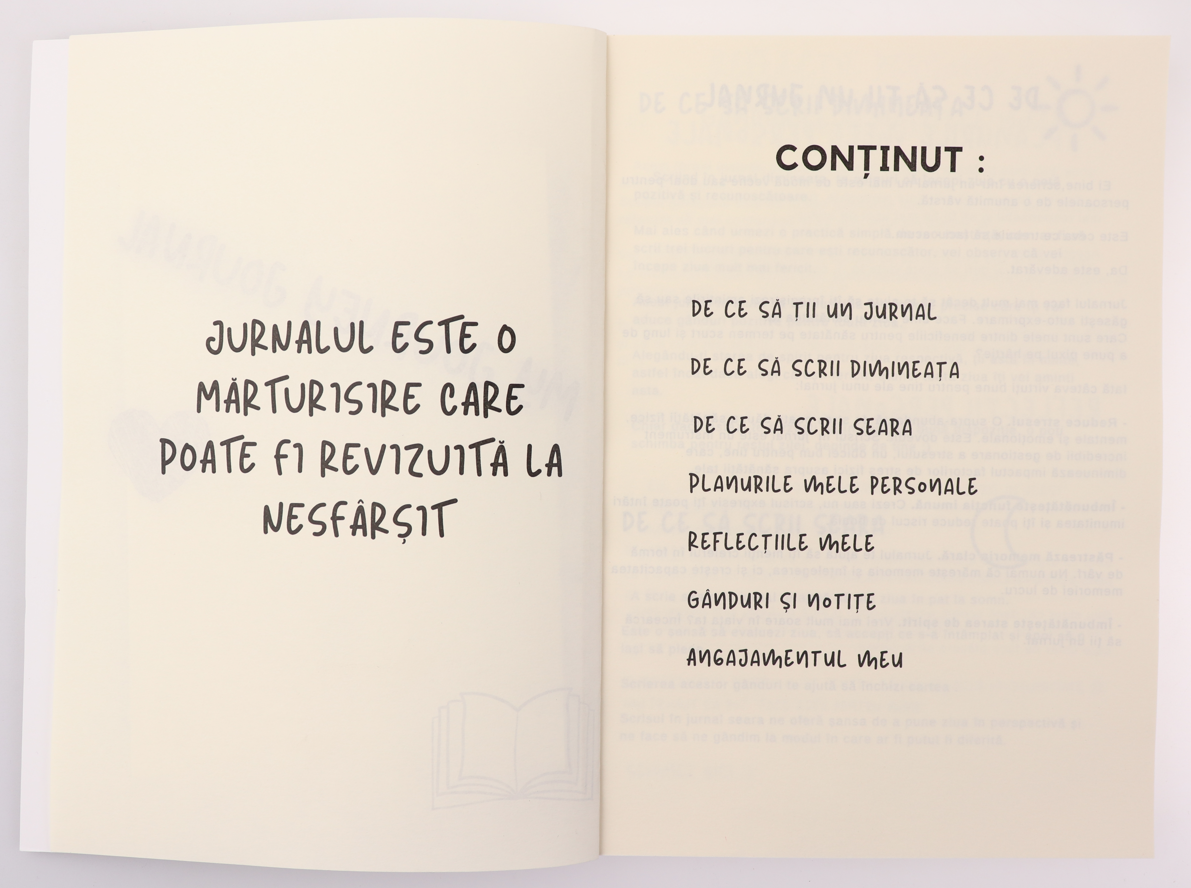 JURNALUL ESTE O
MĂRTURISIRE CARE
POATE FI REVIZUITĂ LA
NESFÂRȘIT
CONȚINUT :
DE CE SĂ ȚII UN JURNAL
DE CE SĂ SCRII DIMINEAȚA
DE CE SĂ SCRII SEARA
PLANURILE MELE PERSONALE
REFLECȚIILE MELE
GÂNDURI ȘI NOTIȚE
ANGAJAMENTUL MEU